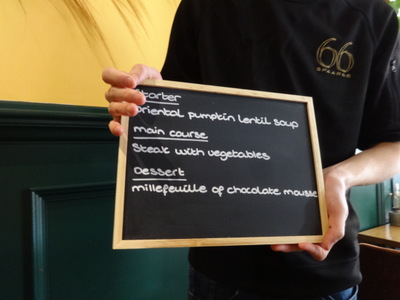 66
SPAARNE
Starter
oriental pumpkin lentil soup
main course
Steak with vegetables
Dessert
millefeuille of chocolate mousse